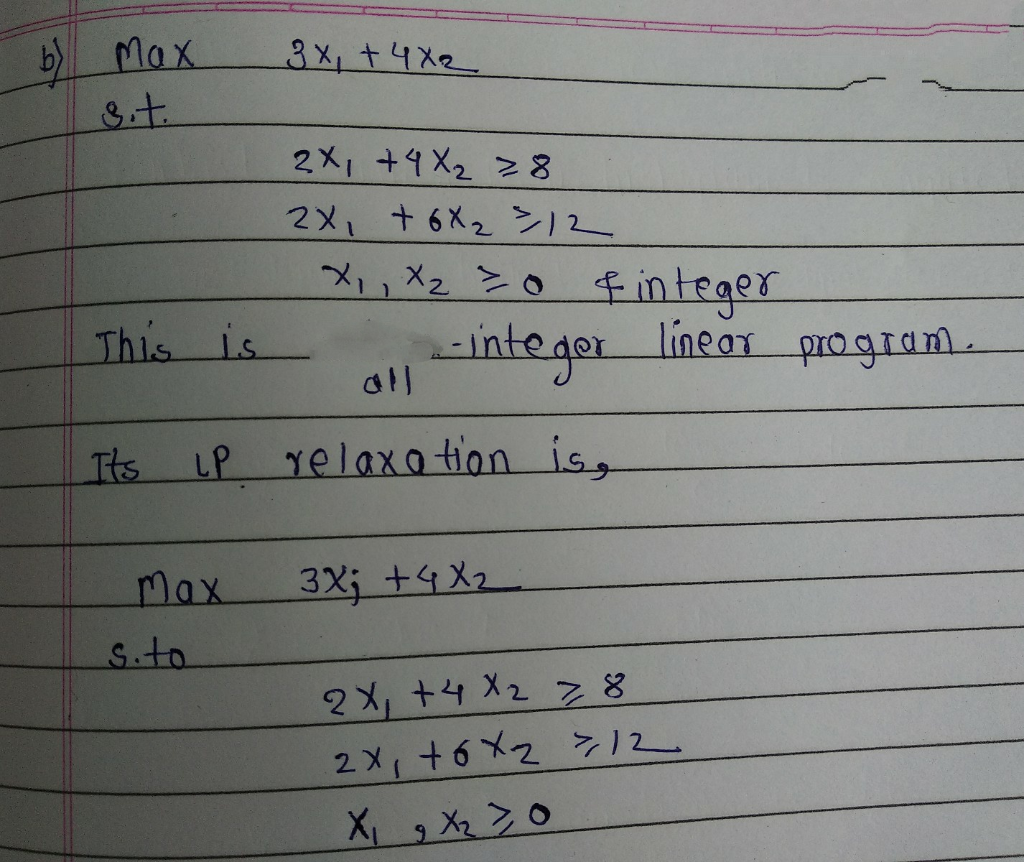 b) Max 3x₁ + 4x₂
s.t.
2x₁ + 4x₂ ≥ 8
2x₁ + 6x₂ ≥ 12
x₁, x₂ ≥ 0 & integer
This is -integer linear program.
all
Its LP relaxation is,
Max 3xj + 4x₂
s.to
2x₁ + 4x₂ ≥ 8
2x₁ + 6x₂ ≥ 12
x₁, x₂ ≥ 0